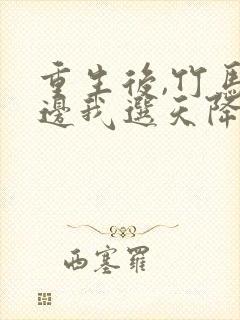 重生後,竹馬
邊我選天降
西塞羅